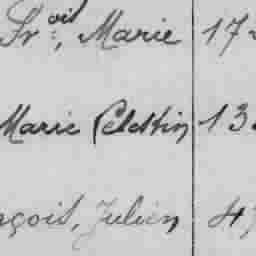 Fr.ois, Marie 17
Marie Celestin 13
nçois, Julien 47